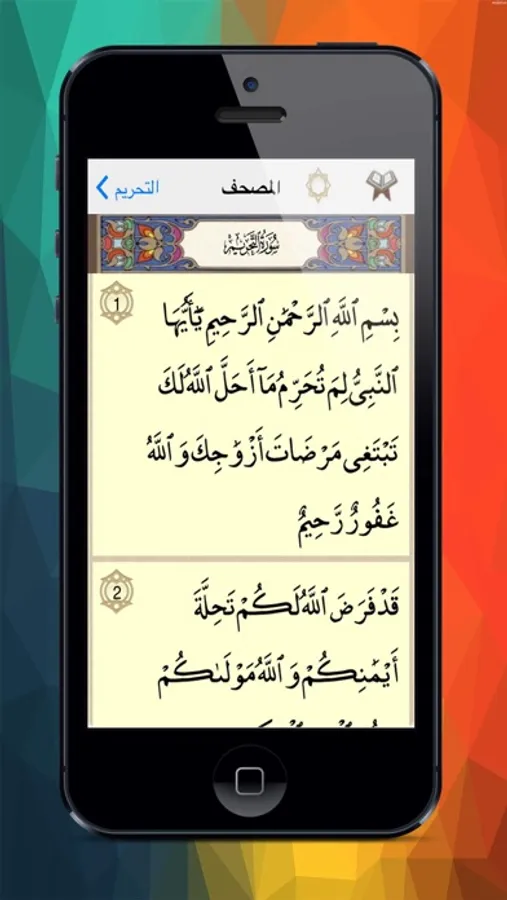 التحريم
المصحف
سُورَةُ التَّحْرِيمِ
1
بِسْمِ ٱللَّهِ ٱلرَّحْمَٰنِ ٱلرَّحِيمِ يَٰٓأَيُّهَا
ٱلنَّبِىُّ لِمَ تُحَرِّمُ مَآ أَحَلَّ ٱللَّهُ لَكَ
تَبْتَغِى مَرْضَاتَ أَزْوَٰجِكَ وَٱللَّهُ
غَفُورٌ رَّحِيمٌ
2
قَدْ فَرَضَ ٱللَّهُ لَكُمْ تَحِلَّةَ
أَيْمَٰنِكُمْ وَٱللَّهُ مَوْلَىٰكُمْ